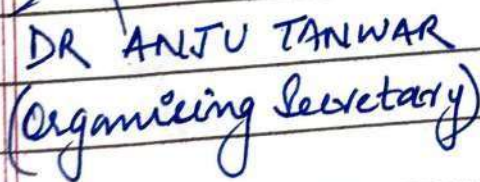 DR ANJU TANWAR
(Organising Secretary)